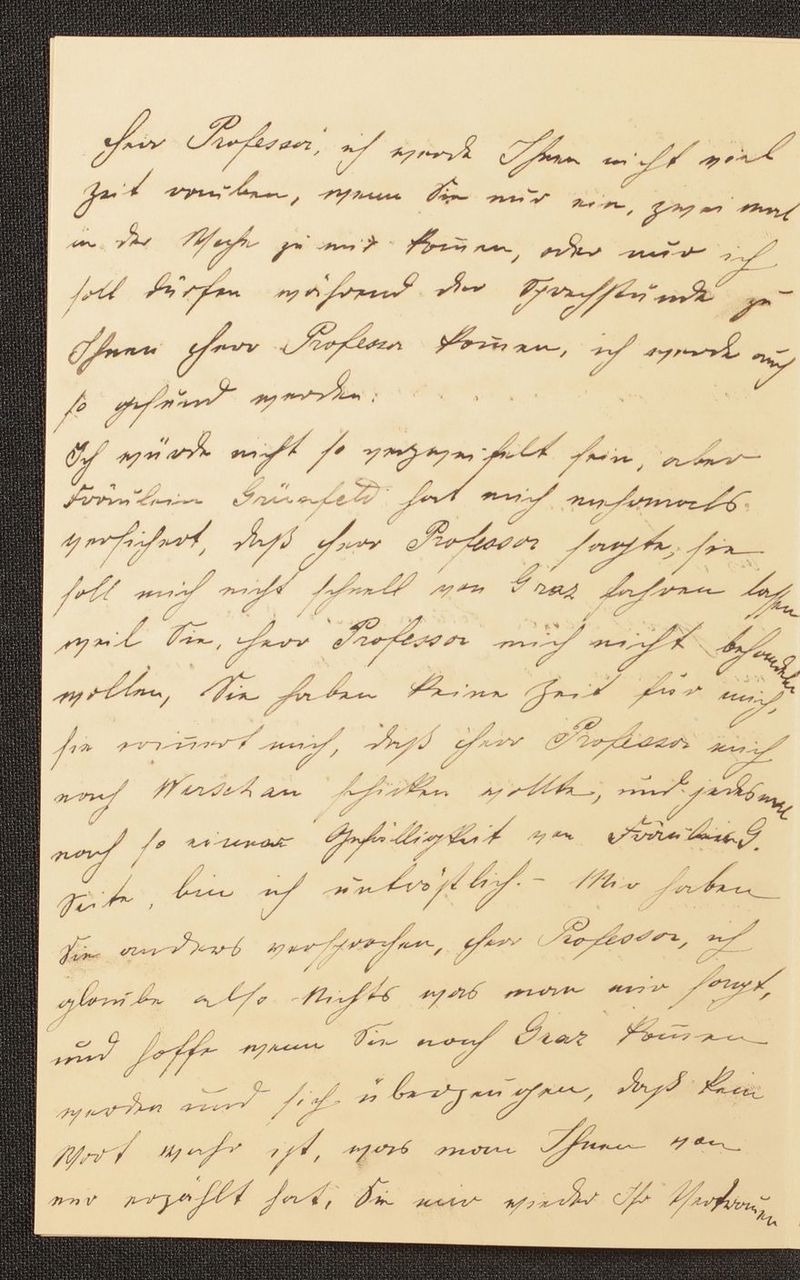 Herr Professor, ich werde Ihnen nicht viel
Zeit rauben, wenn Sie nur ein, zwei mal
in der Woche zu mir kom̄en, oder nur ich
soll dürfen während der Sprechstunde zu
Ihnen Herr Professor kom̄en, ich werde auch
so gesund werden.
Ich würde nicht so verzweifelt sein, aber
Fräulein Grünfeld hat mich mehrmals
versichert, daß Herr Professor sagte, sie
soll mich nicht schnell von Graz fahren lassen
weil Sie, Herr Professor mich nicht behandeln
wollen, Sie haben keine Zeit für mich,
sie erin̄ert mich, daß Herr Professor mich
nach Warschau schicken wollte, und jedesmal
nach so einer Gefälligkeit von Fräulein G.
Seite, bin ich untröstlich. – Mir haben
Sie anders versprochen, Herr Professor, ich
glaube also Nichts was man mir sagt,
und hoffe wenn Sie nach Graz kom̄en
werden und sich überzeugen, daß kein
Wort wahr ist, was man Ihnen von
mir erzählt hat, Sie mir wieder Ihr Vertrauen